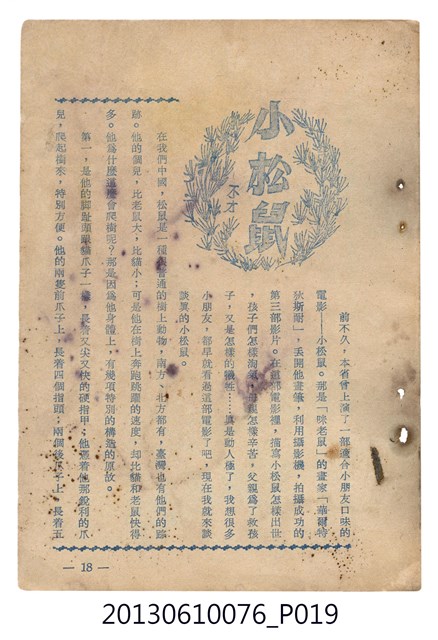 小松鼠
不才
前不久，本省曾上演了一部適合小朋友口味的
電影——小松鼠。那是「咪老鼠」的畫家「華爾特
狄斯耐」，丢開他畫筆，利用攝影機，拍攝成功的
第三部影片。在這部電影裡，描寫小松鼠怎樣出世
，孩子們怎樣淘氣，怎樣辛苦，父親為了救孩
子，又是怎樣的犧牲……真是動人極了，我想很多
小朋友，都早就看過這部電影了吧，現在我就來談
談眞的小松鼠。
在我們中國，松鼠是一種很普通的樹上動物，南方、北方都有，臺灣也有他們的踪
跡。他的個兒，比老鼠大，比貓小；可是他在樹上奔跑跳躍的速度，却比貓和老鼠快得
多。他爲什麼這麼會爬樹呢？那是因爲他身體上，有幾項特別的構造的原故。
第一，是他的脚趾頭跟貓爪子一樣，長着又尖又快的硬指甲，他憑着他那銳利的爪
兒，爬起樹來，特別方便。他的兩隻前爪子上，長着四個指頭；兩個後爪子上，長着五
— 18 —
20130610076_P019